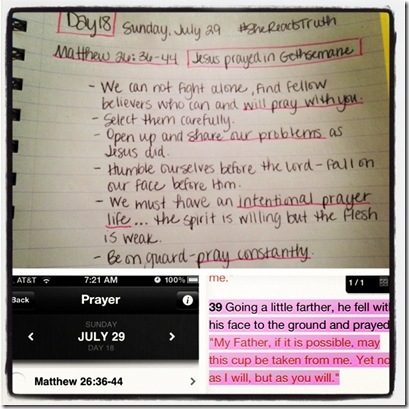 Day 18 Sunday, July 29 #SheReadsTruth
Matthew 26:36-44 Jesus prayed in Gethsemane
- We can not fight alone, find fellow
believers who can and will pray with you.
- Select them carefully.
- Open up and share our problems as
Jesus did.
- Humble ourselves before the Lord - fall on
our face before Him.
- We must have an intentional prayer
life... the spirit is willing but the flesh
is weak.
- Be on guard - pray constantly.
AT&T 7:21 AM 100%
Back Prayer i
SUNDAY
JULY 29
DAY 18
Matthew 26:36-44
me.
1/1
39 Going a little farther, he fell with
his face to the ground and prayed
"My Father, if it is possible, may
this cup be taken from me. Yet no
as I will, but as you will."